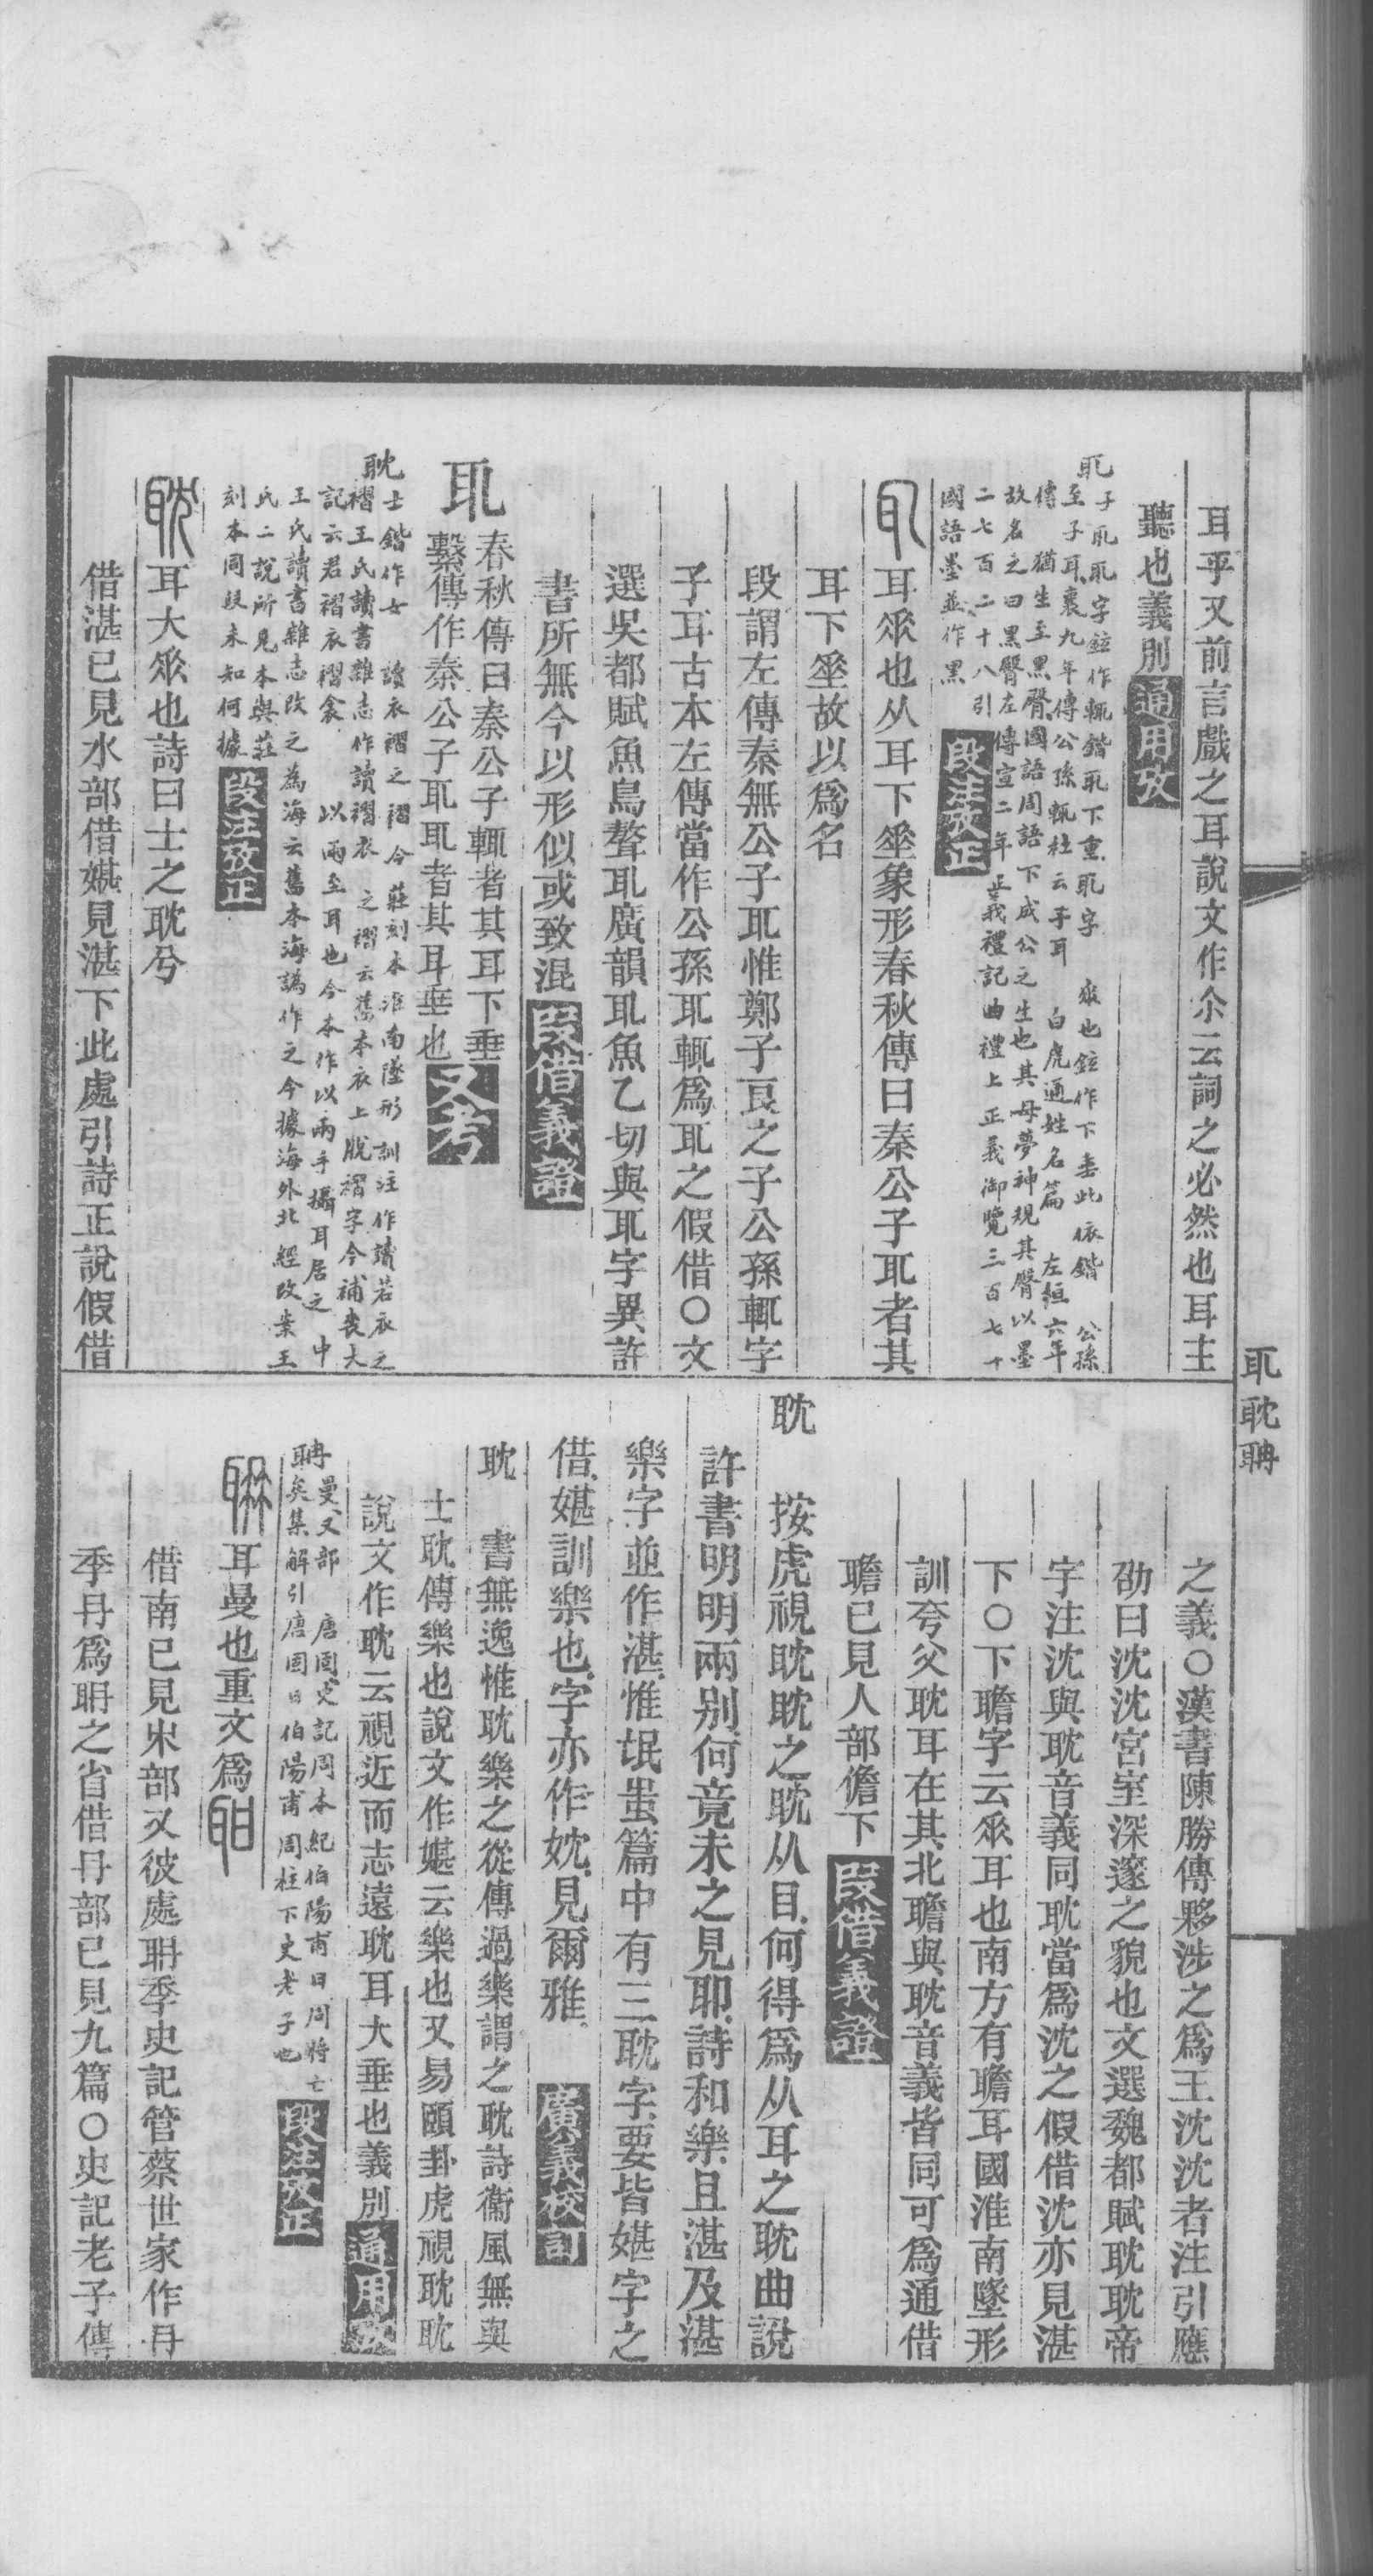 耳乎又前言戲之耳說文作尒云詞之必然也耳主
聽也義別通用攷
耴子耴耴字鉉作輒鍇耴下重耴字 𠂹也鉉作下垂此依鍇 公孫
至子耳襄九年傳公孫輒杜云子耳 白虎通姓名篇 左桓六年
傳 猶生至黑臀國語周語下成公之生也其母夢神規其臀以墨
故名之曰黑臀左傳宣二年正義禮記曲禮上正義御覽三百七十
二七百二十八引
國語墨並作黑 段注攷正
耴 耳𠂹也从耳下𠂹象形春秋傳曰秦公子耴者其
耳下𠂹故以爲名
段謂左傳秦無公子耴惟鄭子良之子公孫輒字
子耳古本左傳當作公孫耴輒爲耴之假借〇文
選吳都賦魚鳥聱耴廣韻耴魚乙切與耴字異許
書所無今以形似或致混 段借義證
耴 春秋傳曰秦公子輒者其耳下垂
繫傳作秦公子耴耴者其耳垂也 文考
耽士鍇作女 讀衣褶之褶今莊刻本淮南墬形訓注作讀若衣之
褶王氏讀書雜志作讀褶衣之褶云舊本衣上脫褶字今補喪大
記云君褶衣褶衾 以兩至耳也今本作以兩手攝耳居之中
王氏讀書雜志改之爲海云舊本海譌作之今據海外北經改案王
氏二說所見本與莊
刻本同段未知何據 段注攷正
耽 耳大𠂹也詩曰士之耽兮
借湛已見水部借媅見湛下此處引詩正說假借
耴耽聃
之義〇漢書陳勝傳夥涉之爲王沈沈者注引應
劭曰沈沈宮室深邃之貌也文選魏都賦耽耽帝
字注沈與耽音義同耽當爲沈之假借沈亦見湛
下〇下瞻字云𠂹耳也南方有瞻耳國淮南墬形
訓夸父耽耳在其北瞻與耽音義皆同可爲通借
瞻已見人部儋下 段借義證
耽 按虎視眈眈之眈从目何得爲从耳之耽曲說
許書明明兩別何竟未之見耶詩和樂且湛及湛
樂字並作湛惟氓蚩篇中有三耽字要皆媅字之
借媅訓樂也字亦作妉見爾雅 廣義校訂
耽 書無逸惟耽樂之從傳過樂謂之耽詩衞風無與
士耽傳樂也說文作媅云樂也又易頤卦虎視耽耽
說文作眈云視近而志遠耽耳大垂也義別通用攷
聃曼又部 唐固史記周本紀伯陽甫曰周將亡
矣集解引唐固曰伯陽甫周柱下史老子也 段注攷正
聃 耳曼也重文爲𦕈
借南已見宋部又彼處聃季史記管蔡世家作冄
季冄爲聃之省借冄部已見九篇〇史記老子傳